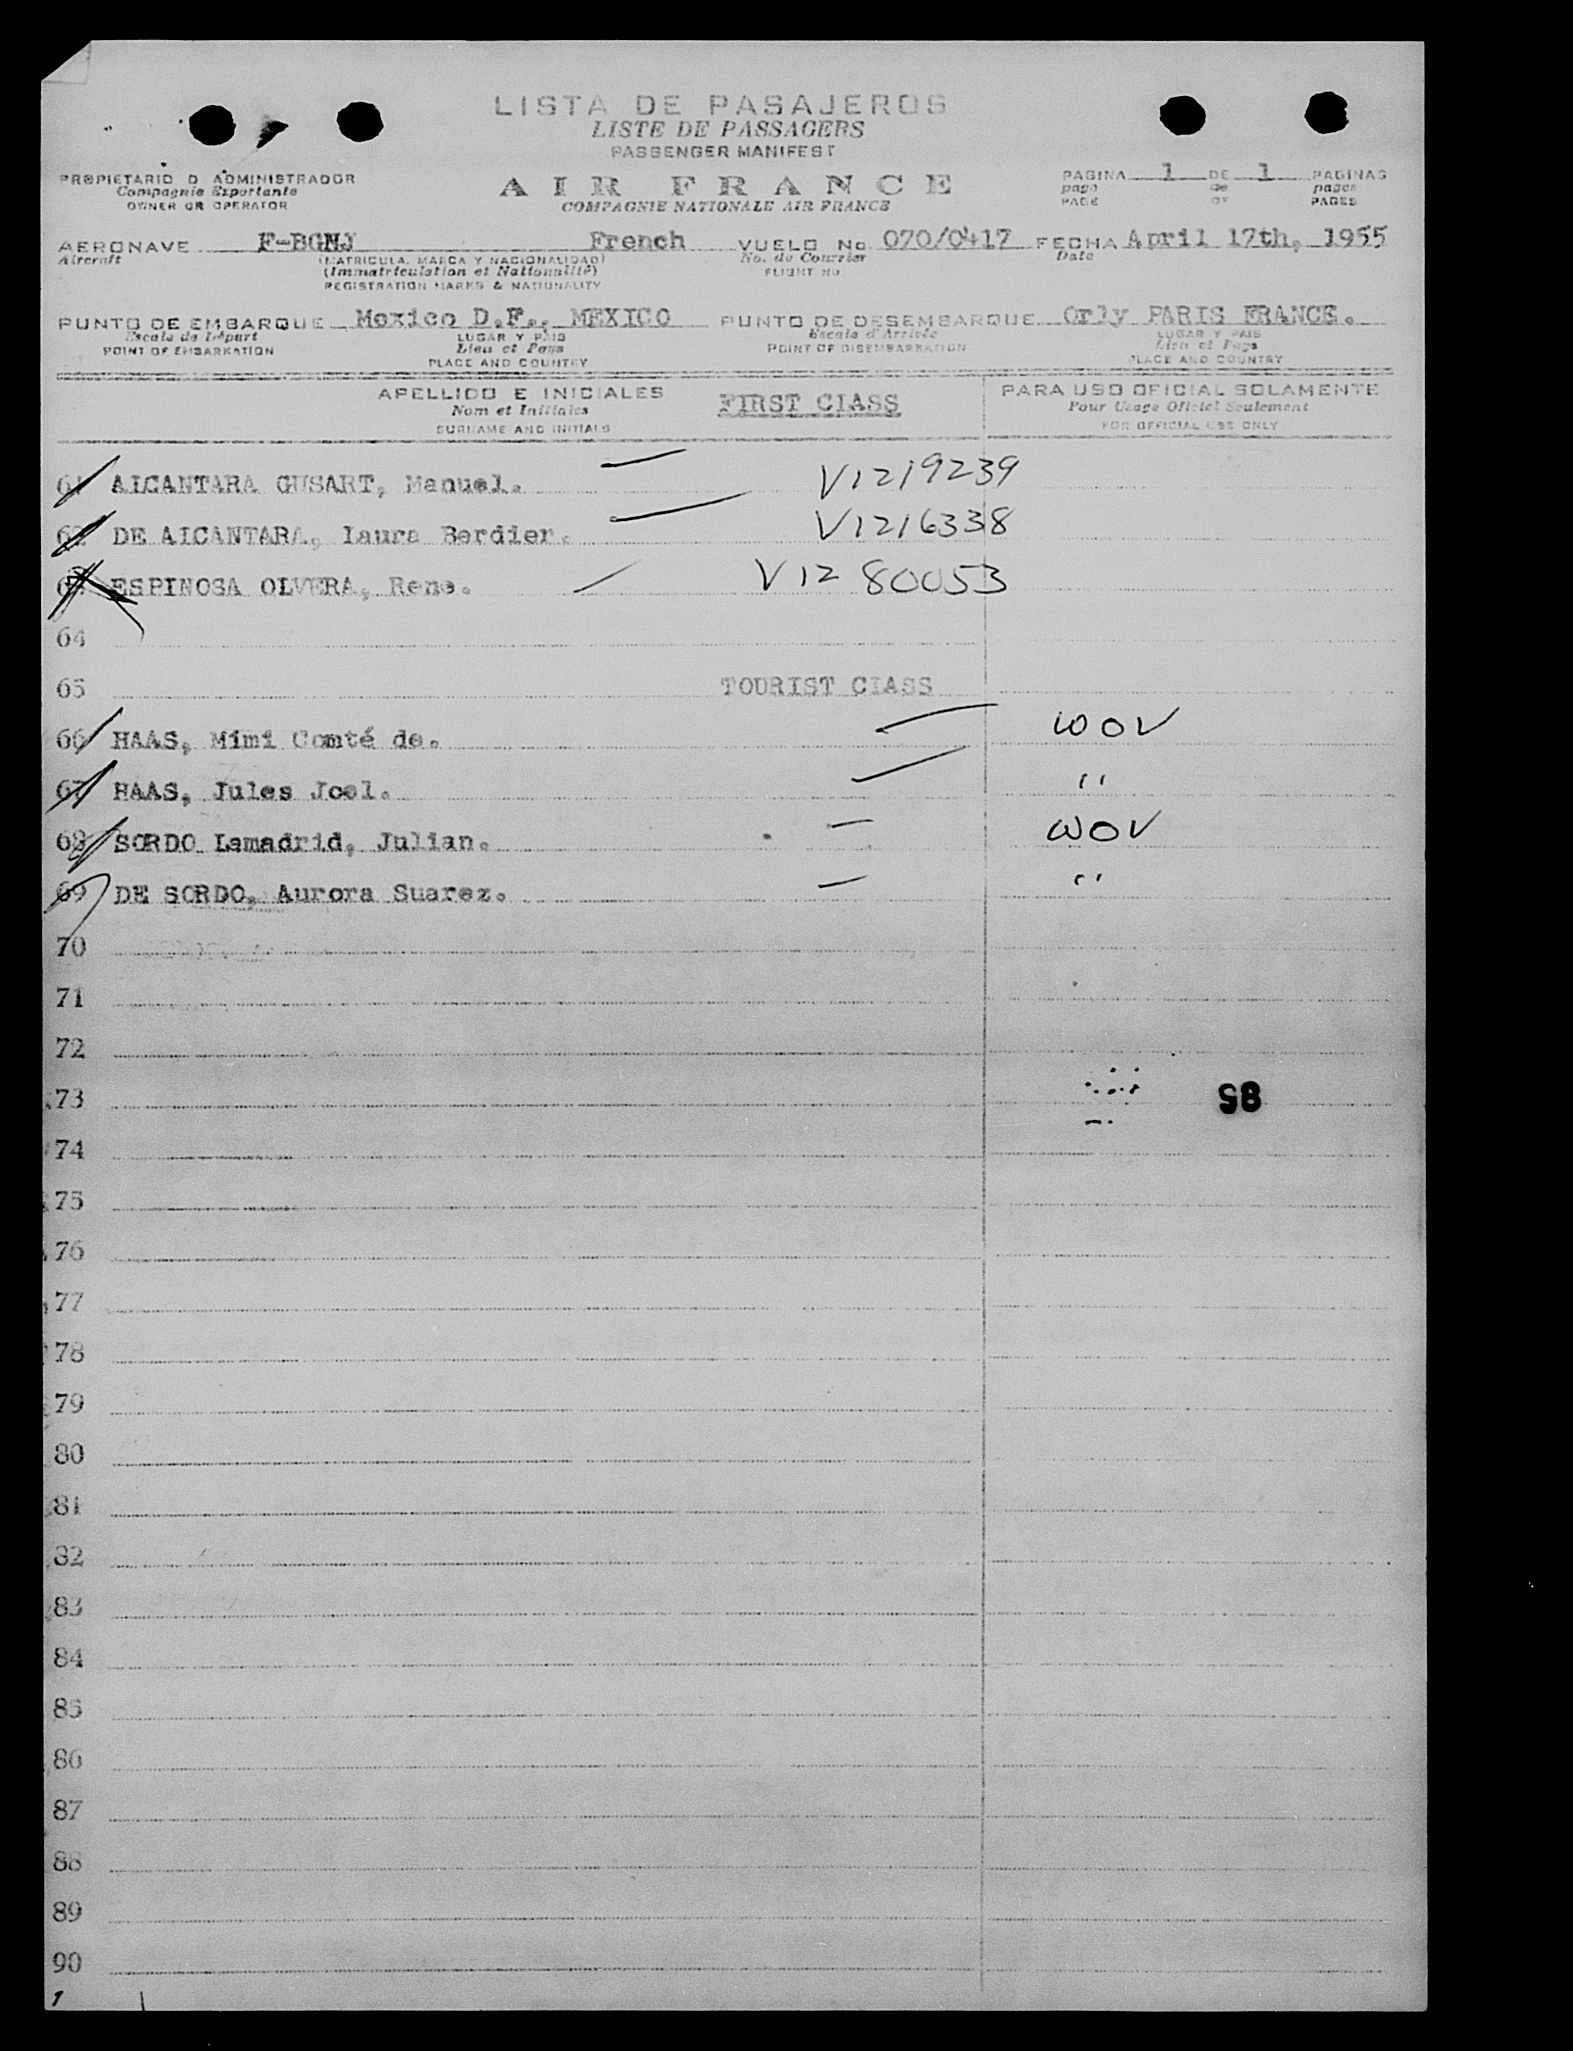 LISTA DE PASAJEROS
LISTE DE PASSAGERS
PASSENGER MANIFEST
PROPIETARIO O ADMINISTRADOR
Compagnie Exportante
OWNER OR OPERATOR
AIR FRANCE
COMPAGNIE NATIONALE AIR FRANCE
PAGINA 1 DE 1 PAGINAS
page de pages
PAGE OF PAGES
AERONAVE F-BGNJ French VUELO No 070/0417 FECHA April 17th, 1955
Aircraft (MATRICULA, MARCA Y NACIONALIDAD) No. de Courrier Date
(Immatriculation et Nationalité) FLIGHT No
REGISTRATION MARKS & NATIONALITY
PUNTO DE EMBARQUE Mexico D.F., MEXICO PUNTO DE DESEMBARQUE Orly PARIS FRANCE.
Escale de Départ LUGAR Y PAIS Escale d'Arrivée LUGAR Y PAIS
POINT OF EMBARKATION Lieu et Pays POINT OF DISEMBARKATION Lieu et Pays
PLACE AND COUNTRY PLACE AND COUNTRY
APELLIDO E INICIALES FIRST CLASS PARA USO OFICIAL SOLAMENTE
Nom et Initiales Pour Usage Officiel Seulement
SURNAME AND INITIALS FOR OFFICIAL USE ONLY
61 ALCANTARA GUSART, Manuel. V1219239
62 DE ALCANTARA, Laura Berdier. V1216338
63 ESPINOSA OLVERA, Rene. V1280053
64
65 TOURIST CLASS
66 HAAS, Mimi Comté de. WOV
67 HAAS, Jules Joel. "
68 SORDO Lamadrid, Julian. WOV
69 DE SORDO, Aurora Suarez. "
70
71
72
73 85
74
75
76
77
78
79
80
81
82
83
84
85
86
87
88
89
90
1